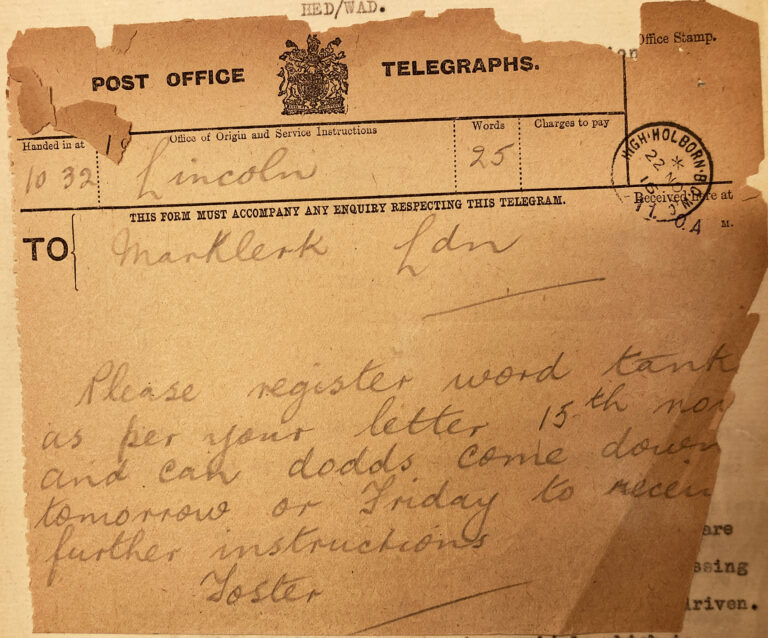 HED/WAD.
Office Stamp.
POST OFFICE TELEGRAPHS.
Handed in at
Office of Origin and Service Instructions
Words
Charges to pay
10 32
Lincoln
25
HIGH·HOLBORN·B.O.W.C.
22 NO
16
Received here at
THIS FORM MUST ACCOMPANY ANY ENQUIRY RESPECTING THIS TELEGRAM.
M.
TO
Marklerk Ldn
Please register word tank
as per your letter 15th nov
and can dodds come down
tomorrow or Friday to receiv
further instructions
Foster
are
ssing
driven.